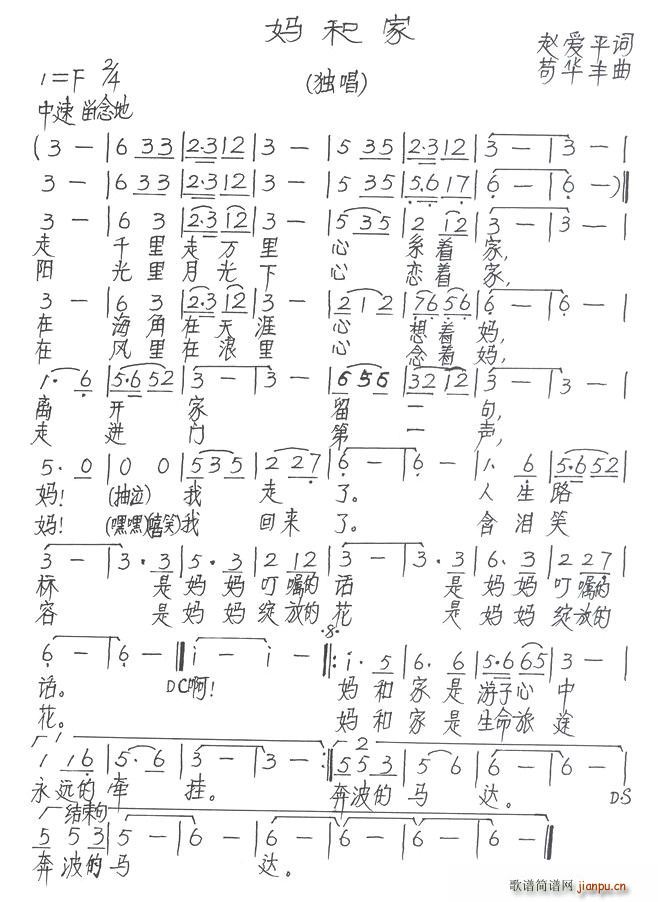 妈和家
赵爱平词
(独唱)
苟华丰曲
1=F 2/4
中速 留念地
(3 - | 6 33 | 2·3 12 | 3 - | 5 35 | 2·3 12 | 3 - | 3 - |
3 - | 6 33 | 2·3 12 | 3 - | 5 35 | 5·6 17 | 6 - | 6 - )‖
3 - | 6 3 | 2·3 12 | 3 - | 5 35 | 2 12 | 3 - | 3 - |
走 千里走万里 心 系着家,
阳 光里月光下 心 恋着家,
3 - | 6 3 | 2·3 12 | 3 - | 2 1 2 | 76 56 | 6 - | 6 - |
在 海角在天涯 心 想着妈,
在 风里在浪里 心 念着妈,
1· 6 | 5·6 52 | 3 - | 3 - | 6 56 | 32 12 | 3 - | 3 - |
离开家 留一句,
走进门 第一声,
5· 0 | 0 0 | 5 3 5 | 2 27 | 6 - | 6 - | 1· 6 | 5·6 52 |
妈! (抽泣) 我走了。 人生路
妈! (嘿嘿)(嘻笑)我回来了。 含泪笑
3 - | 3· 3 | 5· 3 | 2 12 | 3 - | 3· 3 | 6· 3 | 2 27 |
标 是妈妈叮嘱的话 是妈妈叮嘱的
容 是妈妈绽放的花 是妈妈绽放的
6 - | 6 - ‖ i - | i - ‖: i· 5 | 6· 6 | 5·6 65 | 3 - |
话。 DC啊! 妈和家是游子心中
花。 妈和家是生命旅途
1
1 16 | 5· 6 | 3 - | 3 - :‖
2
5 53 | 5 6 | 6 - | 6 - |
永远的牵挂。 奔波的马达。 D·S
结束句
5 53 | 5 - | 6 - | 6 - | 6 - | 6 - | 6 - ‖
奔波的马达。
歌谱简谱网 jianpu.cn